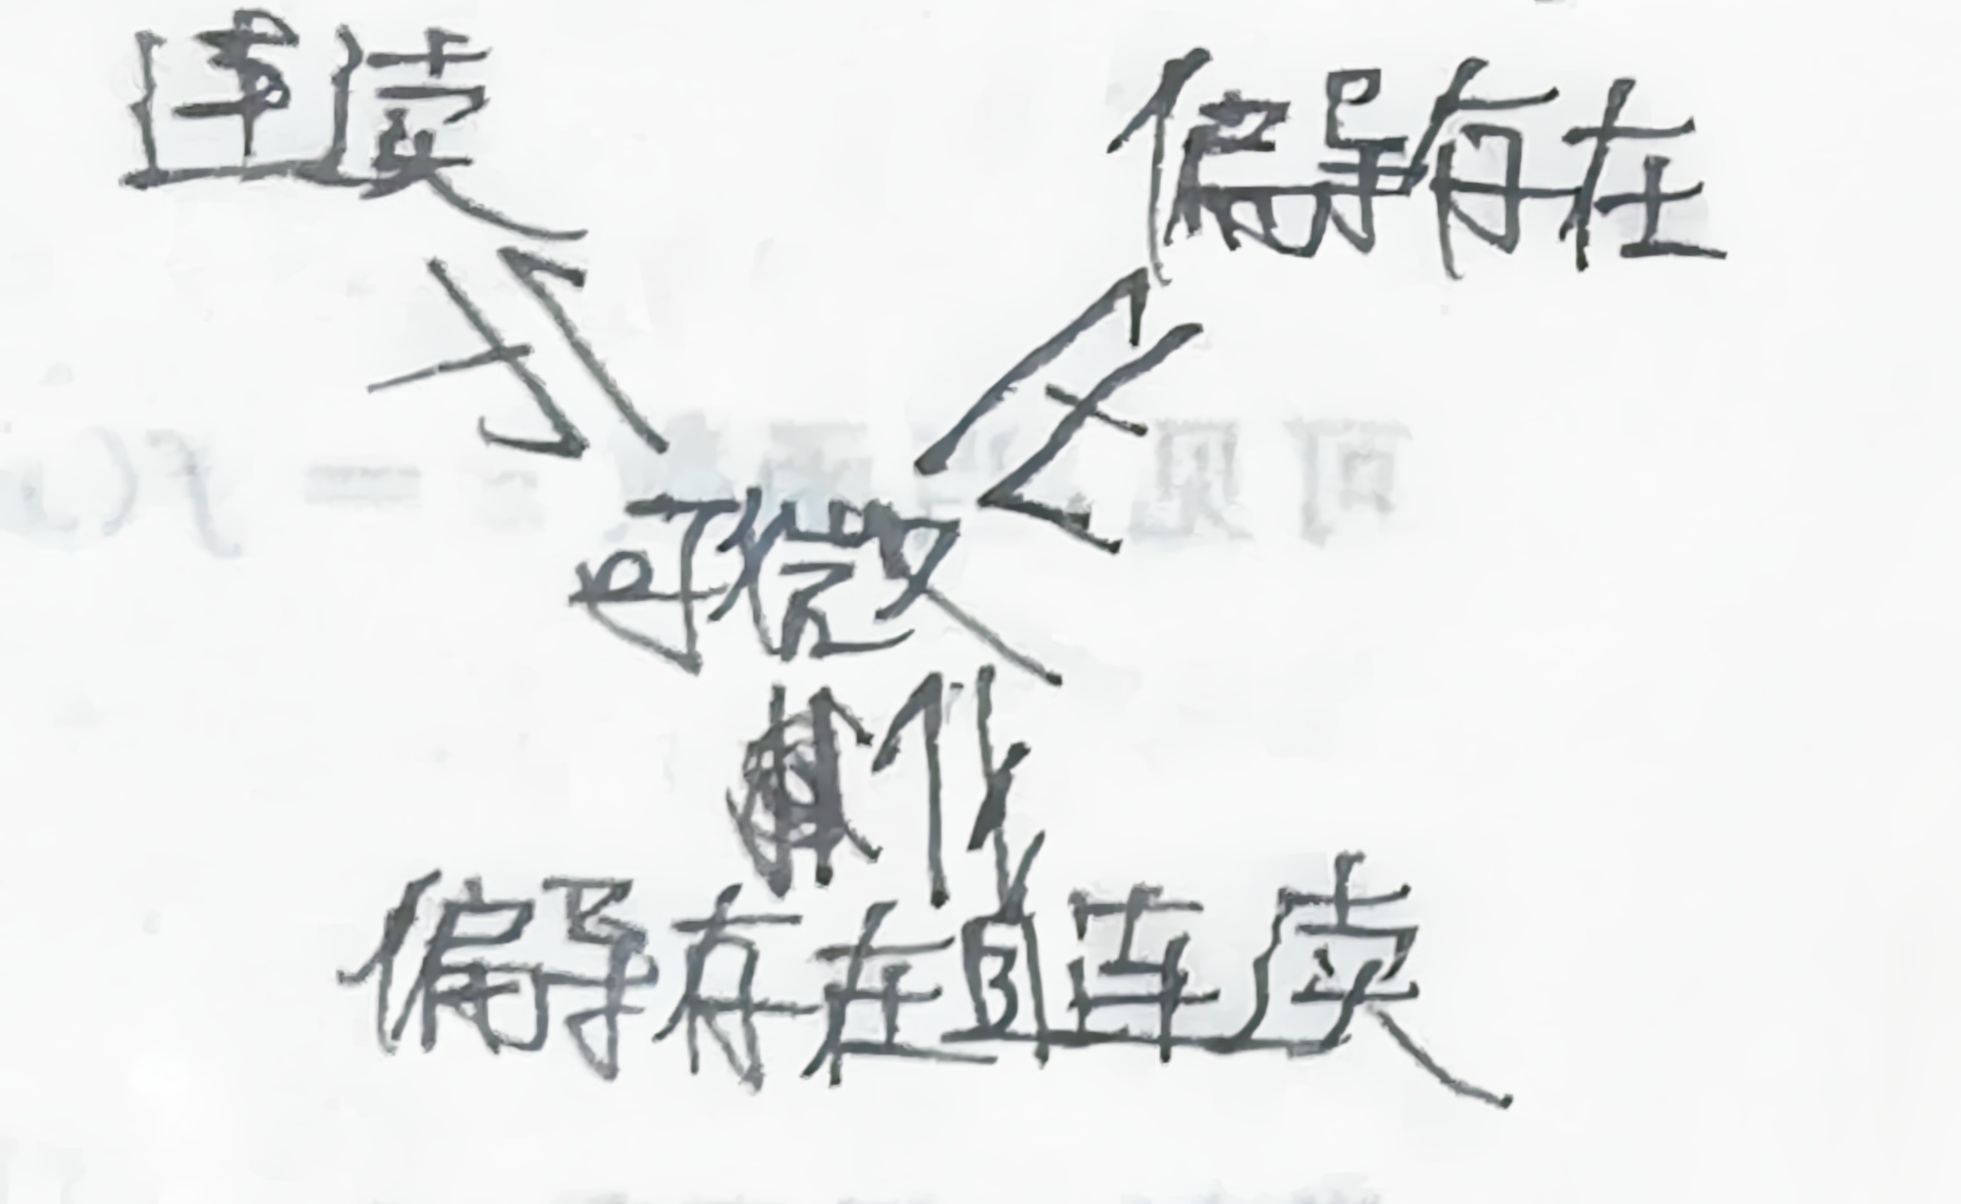 连续
偏导存在
可微
偏导存在且连续